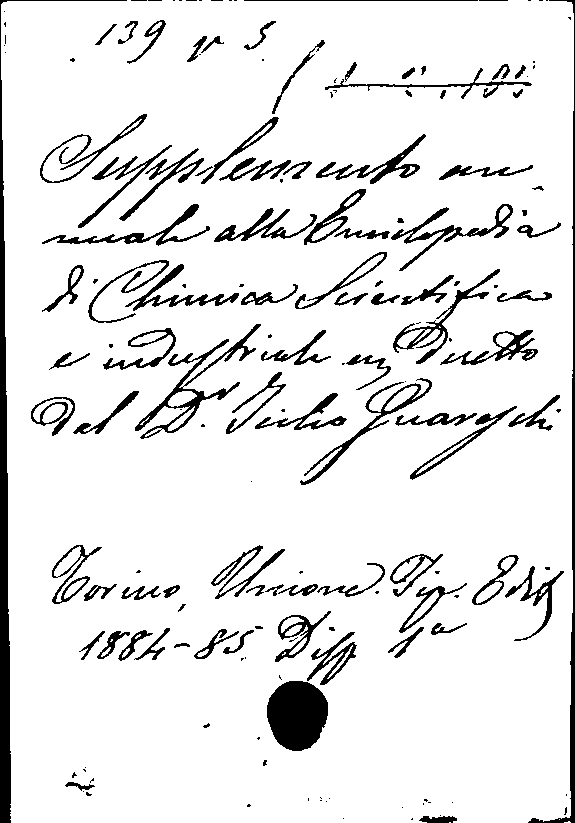 139 v 5
Supplemento an
nuale alla Enciclopedia
di Chimica Scientifica
e industriale ecc Diretto
dal Dr. Icilio Guareschi
Torino, Unione. Tip. Edit
1884-85. Disp 1a